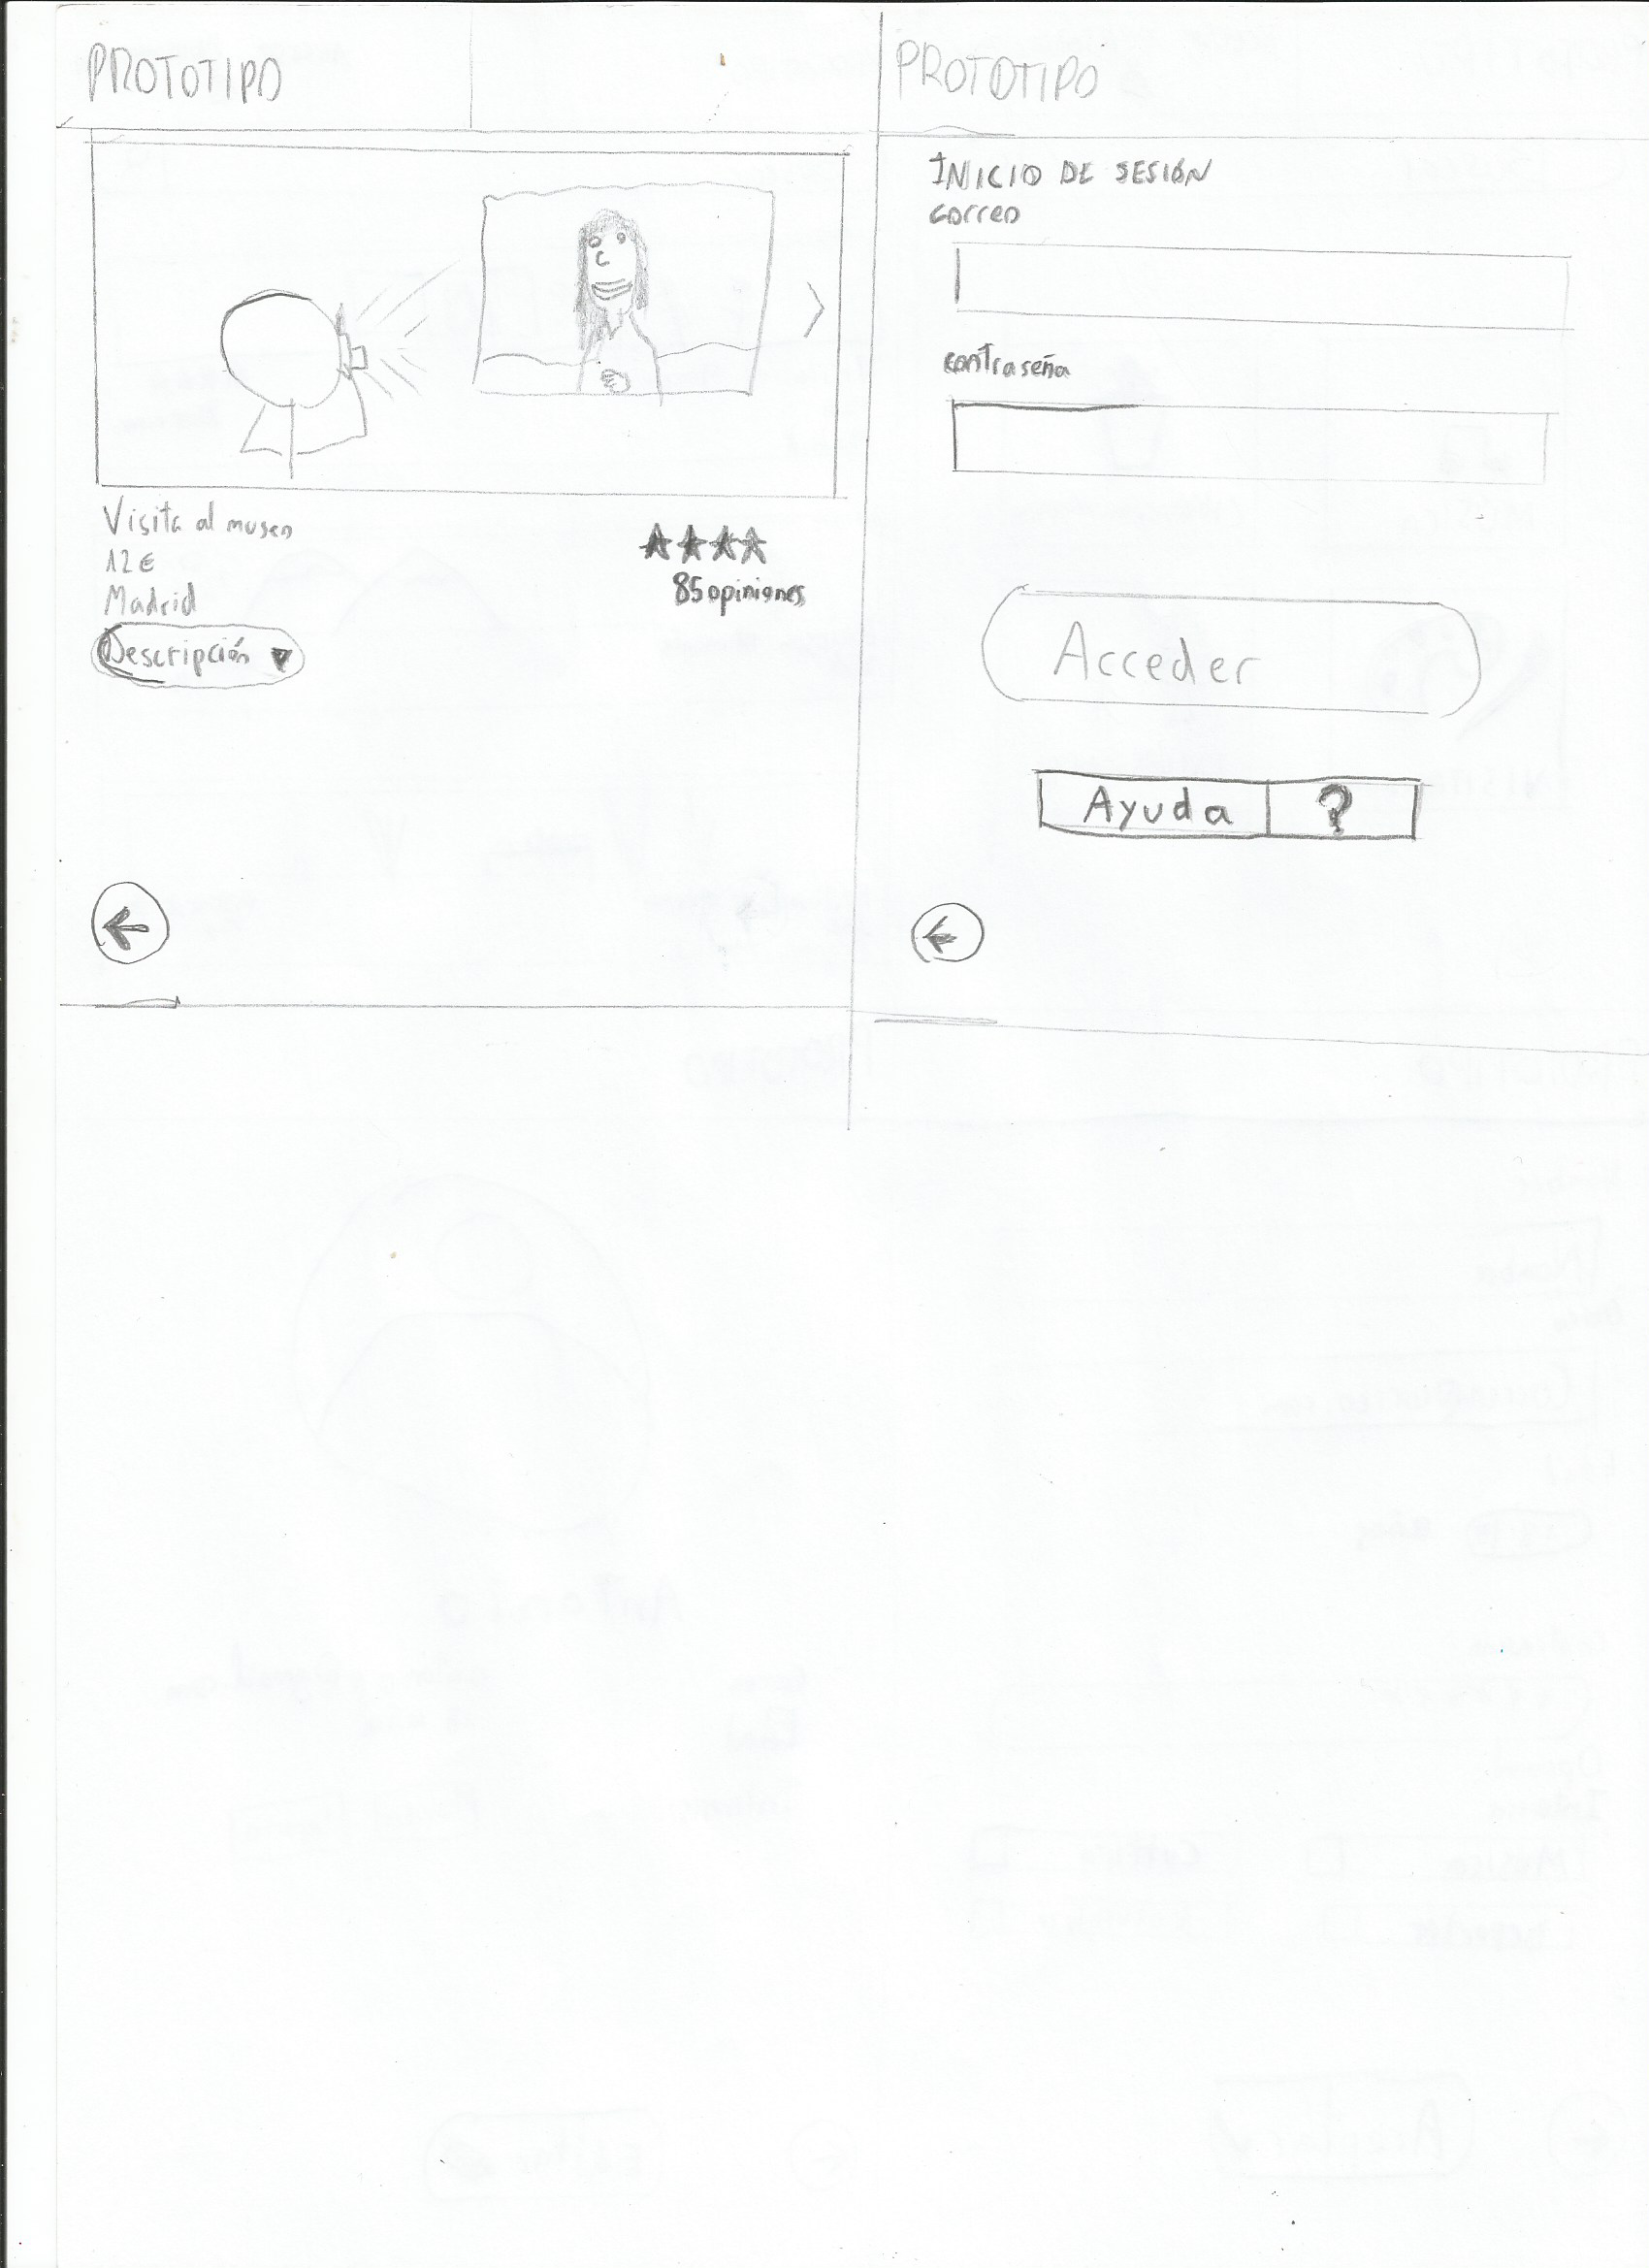 PROTOTIPO
Visita al museo
12€
Madrid
Descripción
85 opiniones
PROTOTIPO
INICIO DE SESIÓN
correo
contraseña
Acceder
Ayuda ?